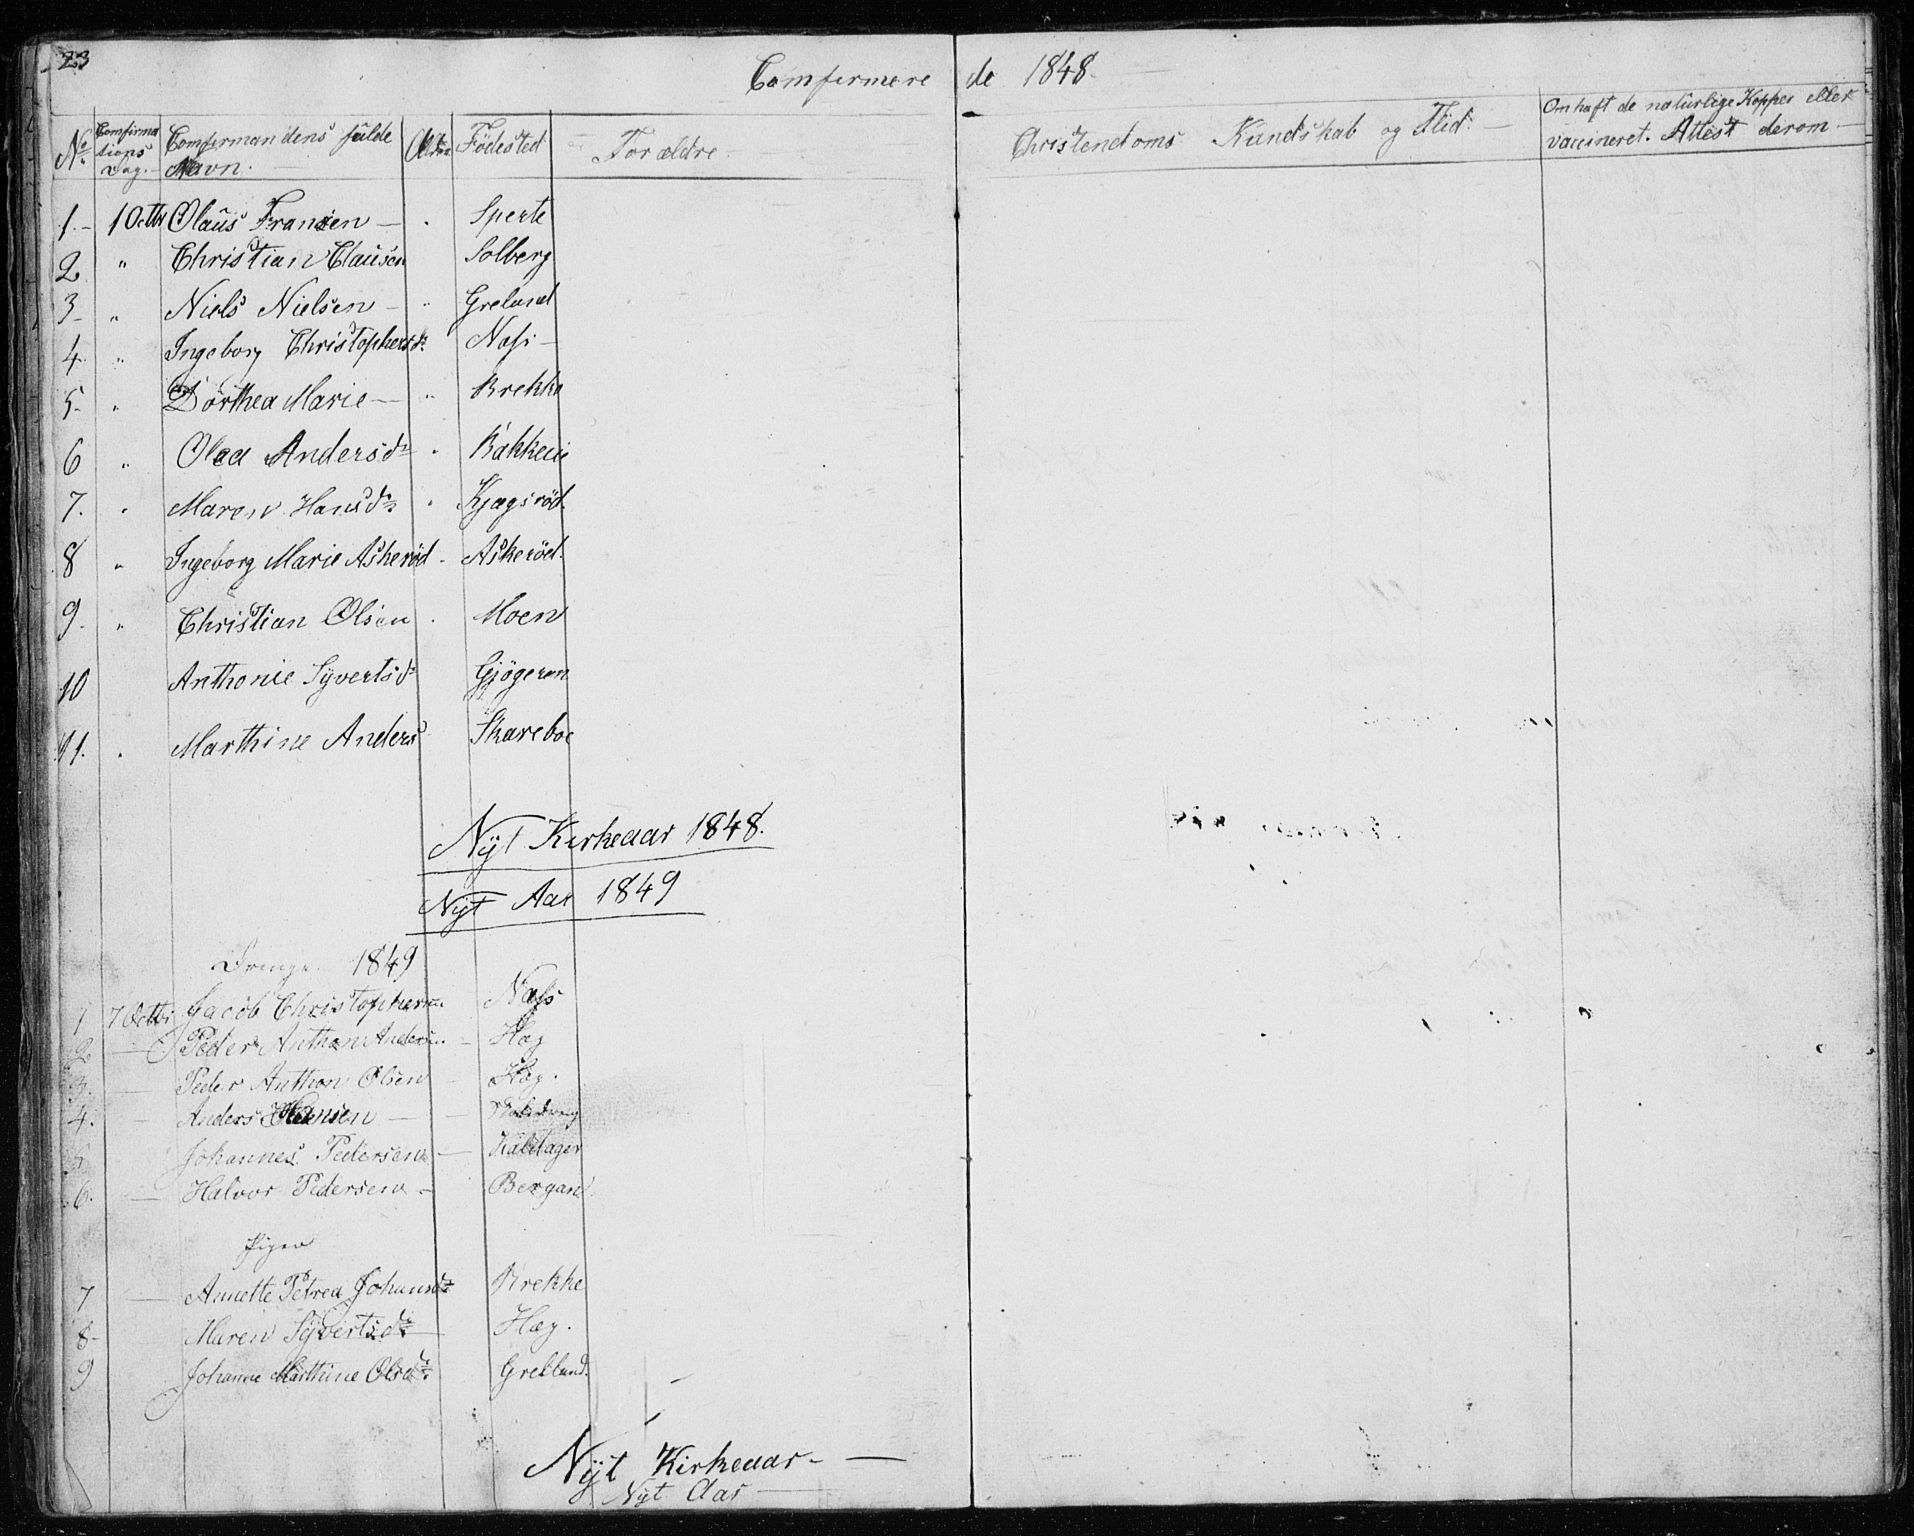 23
Comfermere de 1848.
No. Comfirmations Dag. Comfermandens fulde Navn. Alder Fødested Forældre. Christendoms Kundskab og Flid. Om haft de naturlige Kopper eller vaccineret. Attest derom
1. 1 Octbr Olaus Fransen Sperte
2 " Christian Clausen Solberg
3 " Niels Nielsen " Grelund
4. " Ingeborg Christophersdr Næss
5. " Dorthea Marie " Brekke
6 " Olea Andersdr "
7. " Maren Hansdr " Kjøgsröd.
8 " Ingeborg Marie Askeröd Askeröd.
9. " Christian Olsen Moen
10 Anthonie Syvertsdr Gjögeren
11. Marthine Anders Skareboe
Nyt Kirkeaar 1848.
Nyt Aar 1849
Drenge 1849
1 7 Octbr Jacob Christophersen Næss
2 — Peder Anthon Andersen Hæg
3. — Peder Anthon Olsen Hæg.
4. — Anders Hansen —
Johannes Pedersen — Kaldager
6. — Halvor Pedersen — Bergan
Piger
7 — Annette Petrea Johansdr Brekke
8 Maren Syvertsdr Hæg.
9 Johanne Marthine Olsdr Grellund.
Nyt Kirkeaar —
Nyt Aar —